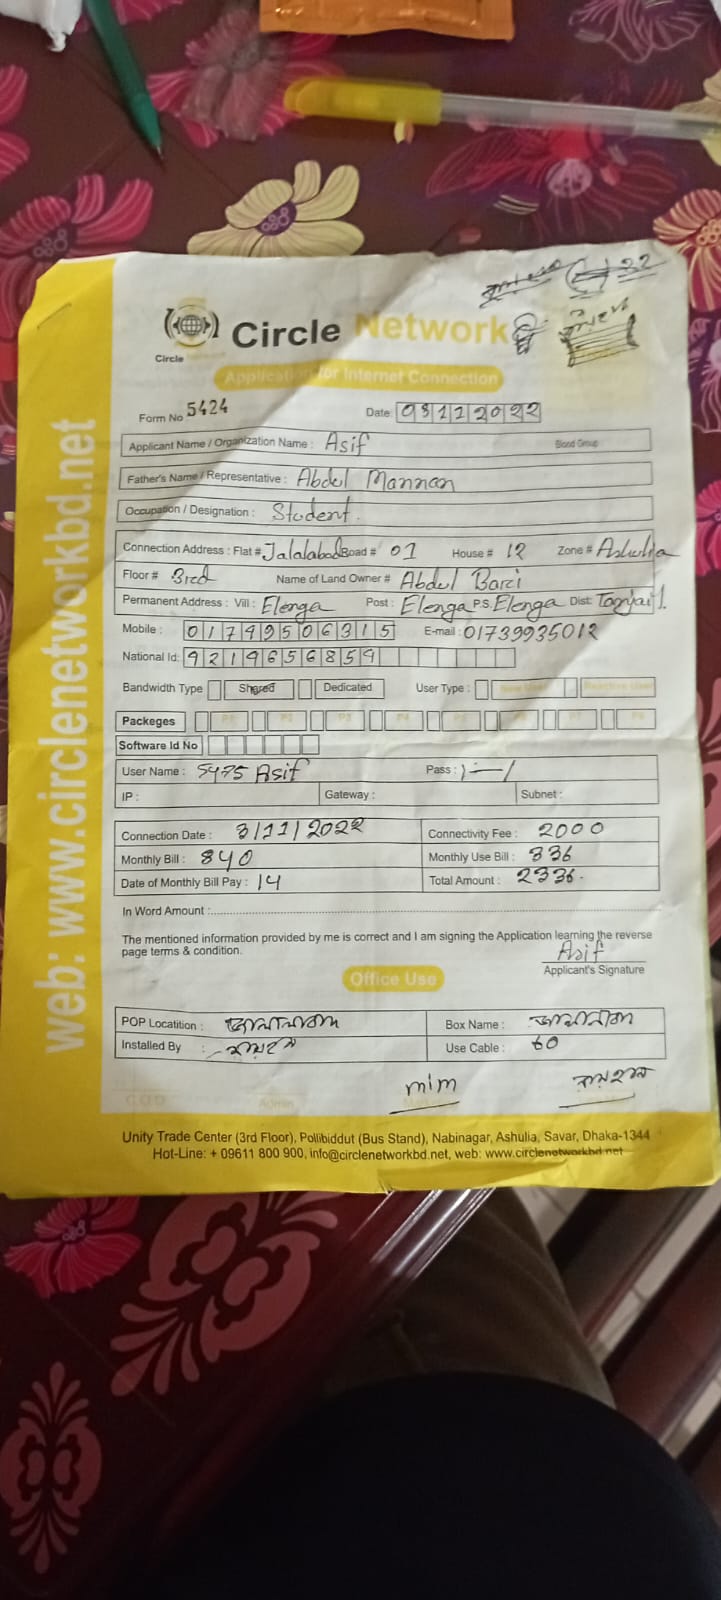 Circle Network
Circle
Application for Internet Connection
Form No 5424
Date: 03122022
Applicant Name / Organization Name : Asif
Blood Group
Father's Name / Representative : Abdul Mannan
Occupation / Designation : Student.
Connection Address : Flat # Jalalabad Road # 01 House # 12 Zone # Ashulia
Floor # 3rd Name of Land Owner # Abdul Bari
Permanent Address : Vill : Elenga Post : Elenga P.S. Elenga Dist:
Mobile : 01749506315 E-mail : 01739935012
National Id: 9219656859
Bandwidth Type Shared Dedicated User Type :
Packeges P1 P2 P3 P4 P5 P6 P7 P8
Software Id No
User Name : 5475 Asif Pass :
IP : Gateway : Subnet :
Connection Date : 3/11/2022 Connectivity Fee : 2000
Monthly Bill : 840 Monthly Use Bill : 336
Date of Monthly Bill Pay : 14 Total Amount : 2336.
In Word Amount :
The mentioned information provided by me is correct and I am signing the Application learning the reverse
page terms & condition.
Asif
Applicant's Signature
Office Use
POP Locatition : জালালাবাদ Box Name :
Installed By : Use Cable : 60
mim
Unity Trade Center (3rd Floor), Pollibiddut (Bus Stand), Nabinagar, Ashulia, Savar, Dhaka-1344
Hot-Line: + 09611 800 900, info@circlenetworkbd.net, web: www.circlenetworkbd.net
web: www.circlenetworkbd.net